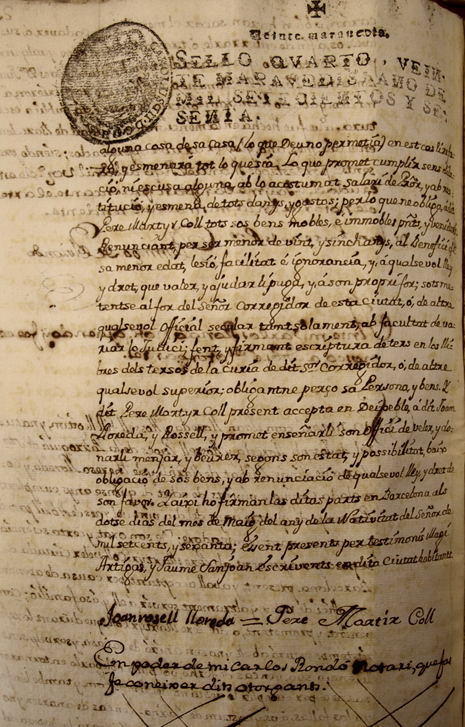 Veinte maravedis.
SELLO QVARTO, VEIN-
TE MARAVEDIS, AÑO DE
MIL SETECIENTOS Y SE-
SENTA.
alguna cosa de sa casa (lo que Deu no permetia) en est cas li
y esmenará tot lo que sia. Lo que promet cumplir sens
ció, ni escusa alguna, ab lo acostumat salari de y ab res-
titució, y esmena de tots danys, y gastos; per lo que ne obliga
Pere Martyr Coll tots sos bens mobles, e immobles
Renunciant, per ser menor de vint, y sinch anys, al Benefici de
sa menor edat, lesió, facilitat ó ignorancia, y á qualsevol lley
y dret, que valer, y ajudarli puga, y á son propri for; sotsme-
tentse al for del Señor Corregidor de esta Ciutat, ó, de altre
qualsevol Official secular tantsolament, ab facultat de va-
riar lo judici; fent, y firmant escriptura de ters en los lli-
bres dels tersos de la curia de dit Sr. Corregidor, ó, de altre
qualsevol superior; obligantne perço sa Persona, y bens. Y
dit Pere Martyr Coll present accepta en Dexeble, á dit Joan
Lloreda, y Rossell, y promet enseñarli son Offici de veler, y do-
narli menjar, y beurer, segons son estat, y possibilitat, baix
obligacio de sos bens, y ab renunciació de qualsevol lley, y dret de
son favor. Y aixi ho firman las ditas parts en Barcelona als
dotse dias del mes de Maig del any de la Nativitat del Señor de
mil setcents, y sexanta; essent presents per testimonis Magi
Artigas, y Jaume Sanjoan escrivents en dita Ciutat habitants
Joan rosell lloreda = Pere Martir Coll
En poder de mi Carlos Rondó Notari, que fas
fe coneixer dits otorgants.